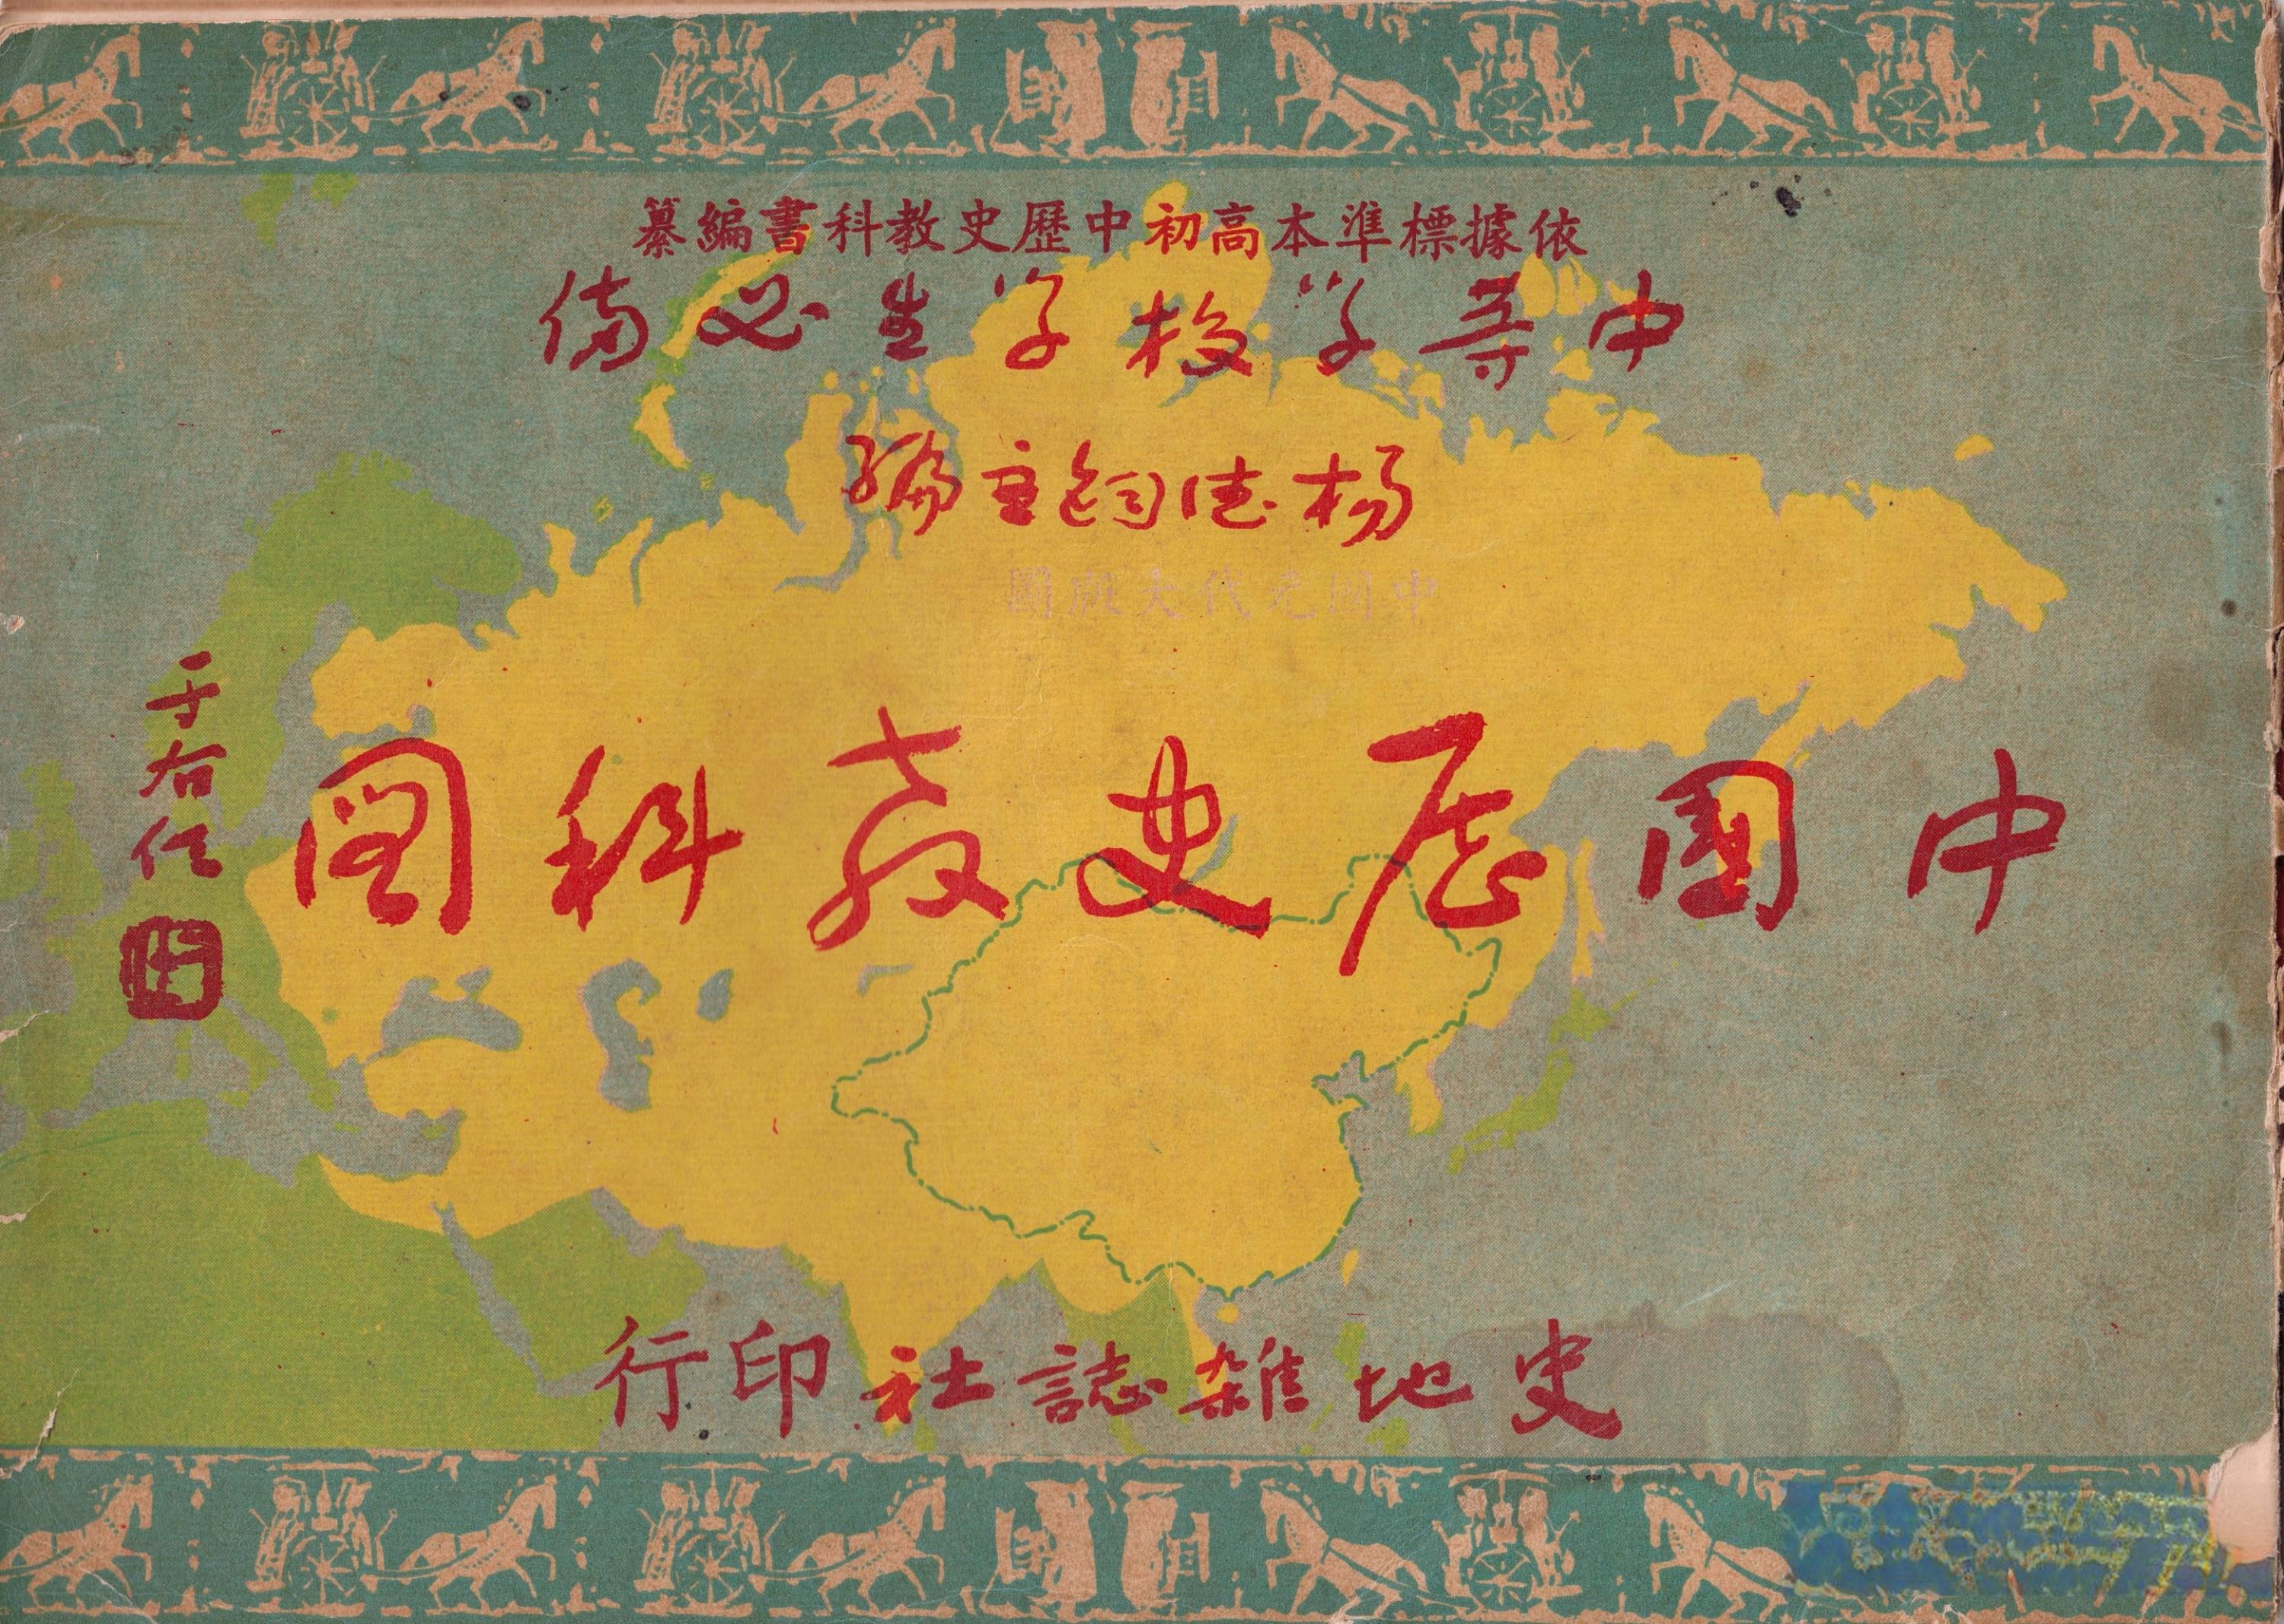 依據標準本高初中歷史教科書編纂
中等学校学生必備
楊志鈞主編
中國元代大版圖
中國歷史教科圖
于右任
史地雜誌社印行